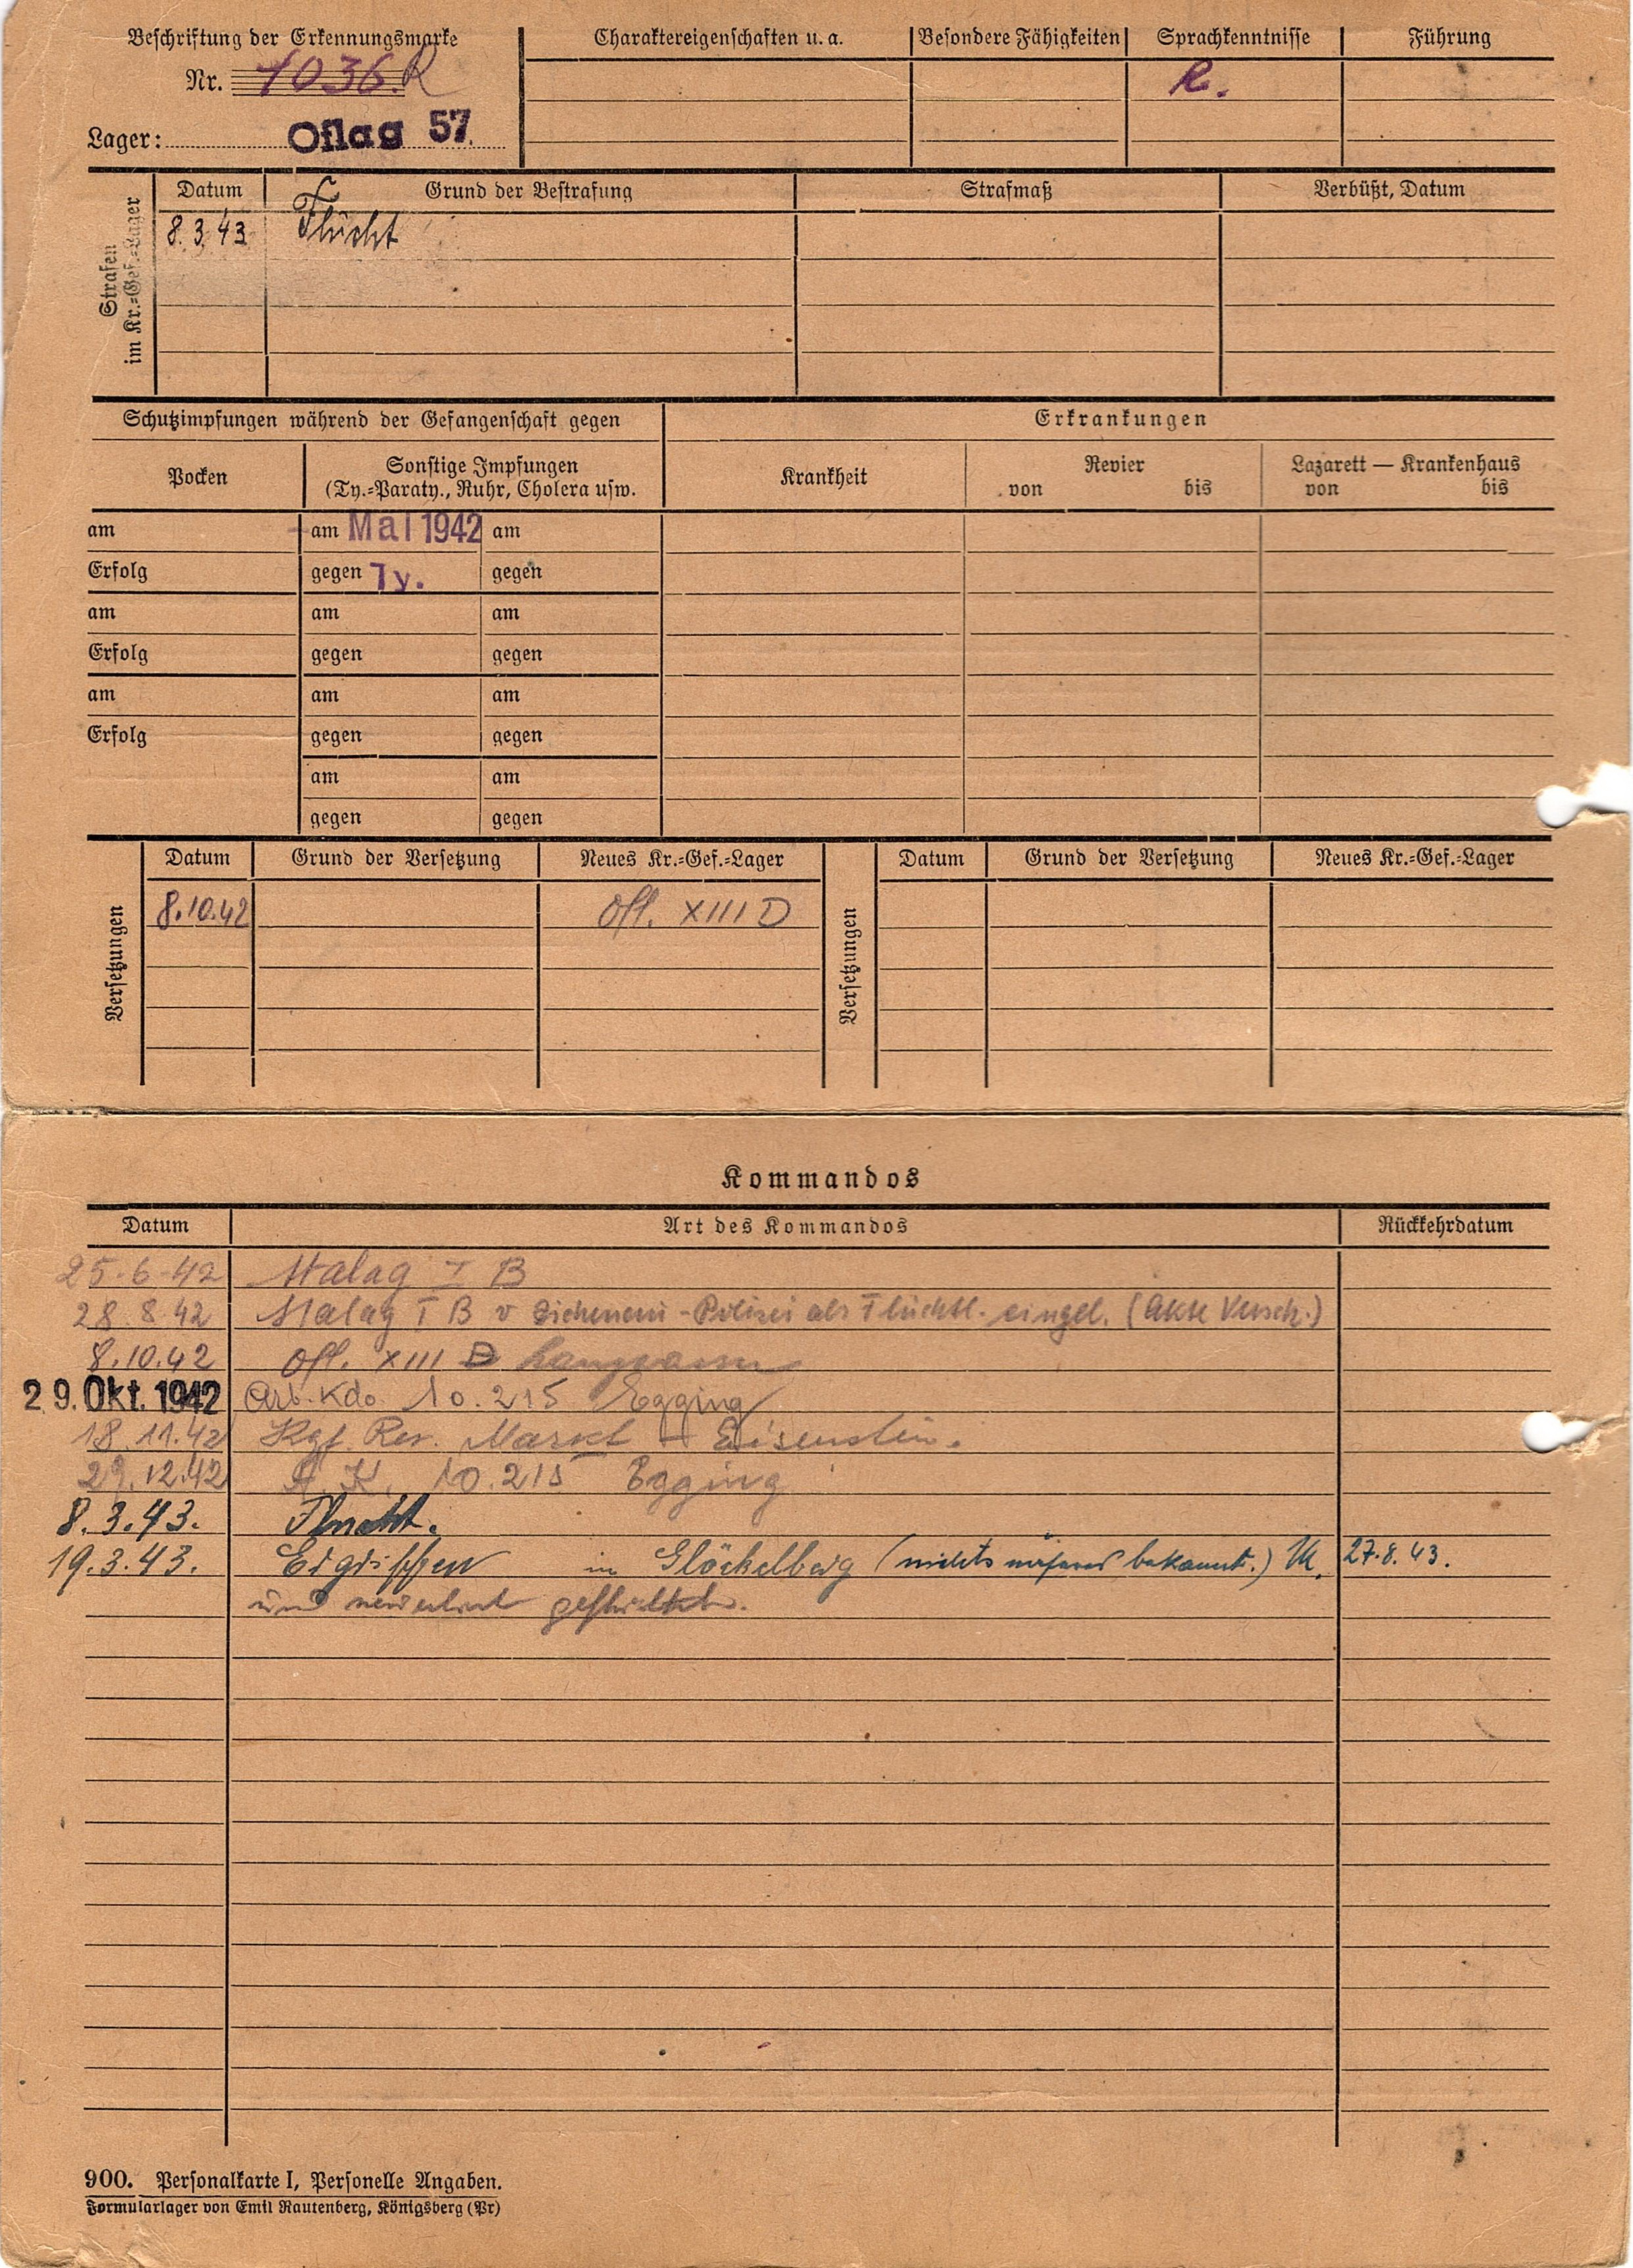 Beschriftung der Erkennungsmarke
Nr. 1036.R
Lager: Oflag 57.
Charaktereigenschaften u. a. Besondere Fähigkeiten Sprachkenntnisse Führung
R.
Strafen
im Kr.=Gef.=Lager
Datum Grund der Bestrafung Strafmaß Verbüßt, Datum
8.3.43 Flucht
Schutzimpfungen während der Gefangenschaft gegen Erkrankungen
Pocken Sonstige Impfungen Krankheit Revier Lazarett — Krankenhaus
(Ty.=Paraty., Ruhr, Cholera usw. von bis von bis
am am Mai 1942 am
Erfolg gegen Ty. gegen
am am am
Erfolg gegen gegen
am am am
Erfolg gegen gegen
am am
gegen gegen
Versetzungen Datum Grund der Versetzung Neues Kr.=Gef.=Lager Versetzungen Datum Grund der Versetzung Neues Kr.=Gef.=Lager
8.10.42 Ofl. XIII D
Kommandos
Datum Art des Kommandos Rückkehrdatum
25.6.42 Stalag I B
28.8.42 Stalag I B v -Polizei als Flüchtl. eingel. (Akte Versch.)
8.10.42 Ofl. XIII D Langwasser
29. Okt. 1942 Arb. Kdo. 10.215 Egging
18.11.42 Kgf. Res. Markt - Eisenstein.
29.12.42 A. K. 10.215 Egging
8.3.43. Flucht.
19.3.43. Ergriffen in Glöckelberg (nichts näheres bekannt.) 27.8.43.
und
900. Personalkarte I, Personelle Angaben.
Formularlager von Emil Rautenberg, Königsberg (Pr)